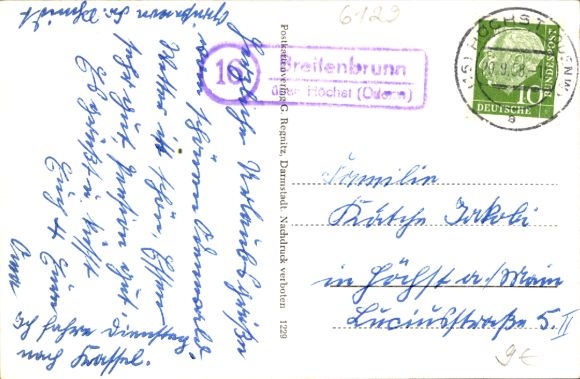 6129
Herzliche Urlaubsgrüße
vom schönen Odenwald
Wetter ist schön, Essen
sehr gut Pension gut
Es grüßt u. küßt
Euch
Ich fahre Dienstag
nach Kassel.
16
Breitenbrunn
über Höchst (Odenw)
Postkartenverlag G. Regnitz, Darmstadt. Nachdruck verboten 1229
(16) HÖCHST (ODENW)
a
DEUTSCHE
BUNDESPOST
10
Familie
Käthe Jakobi
in Höchst a/Main
Luciusstraße 5. II
9€